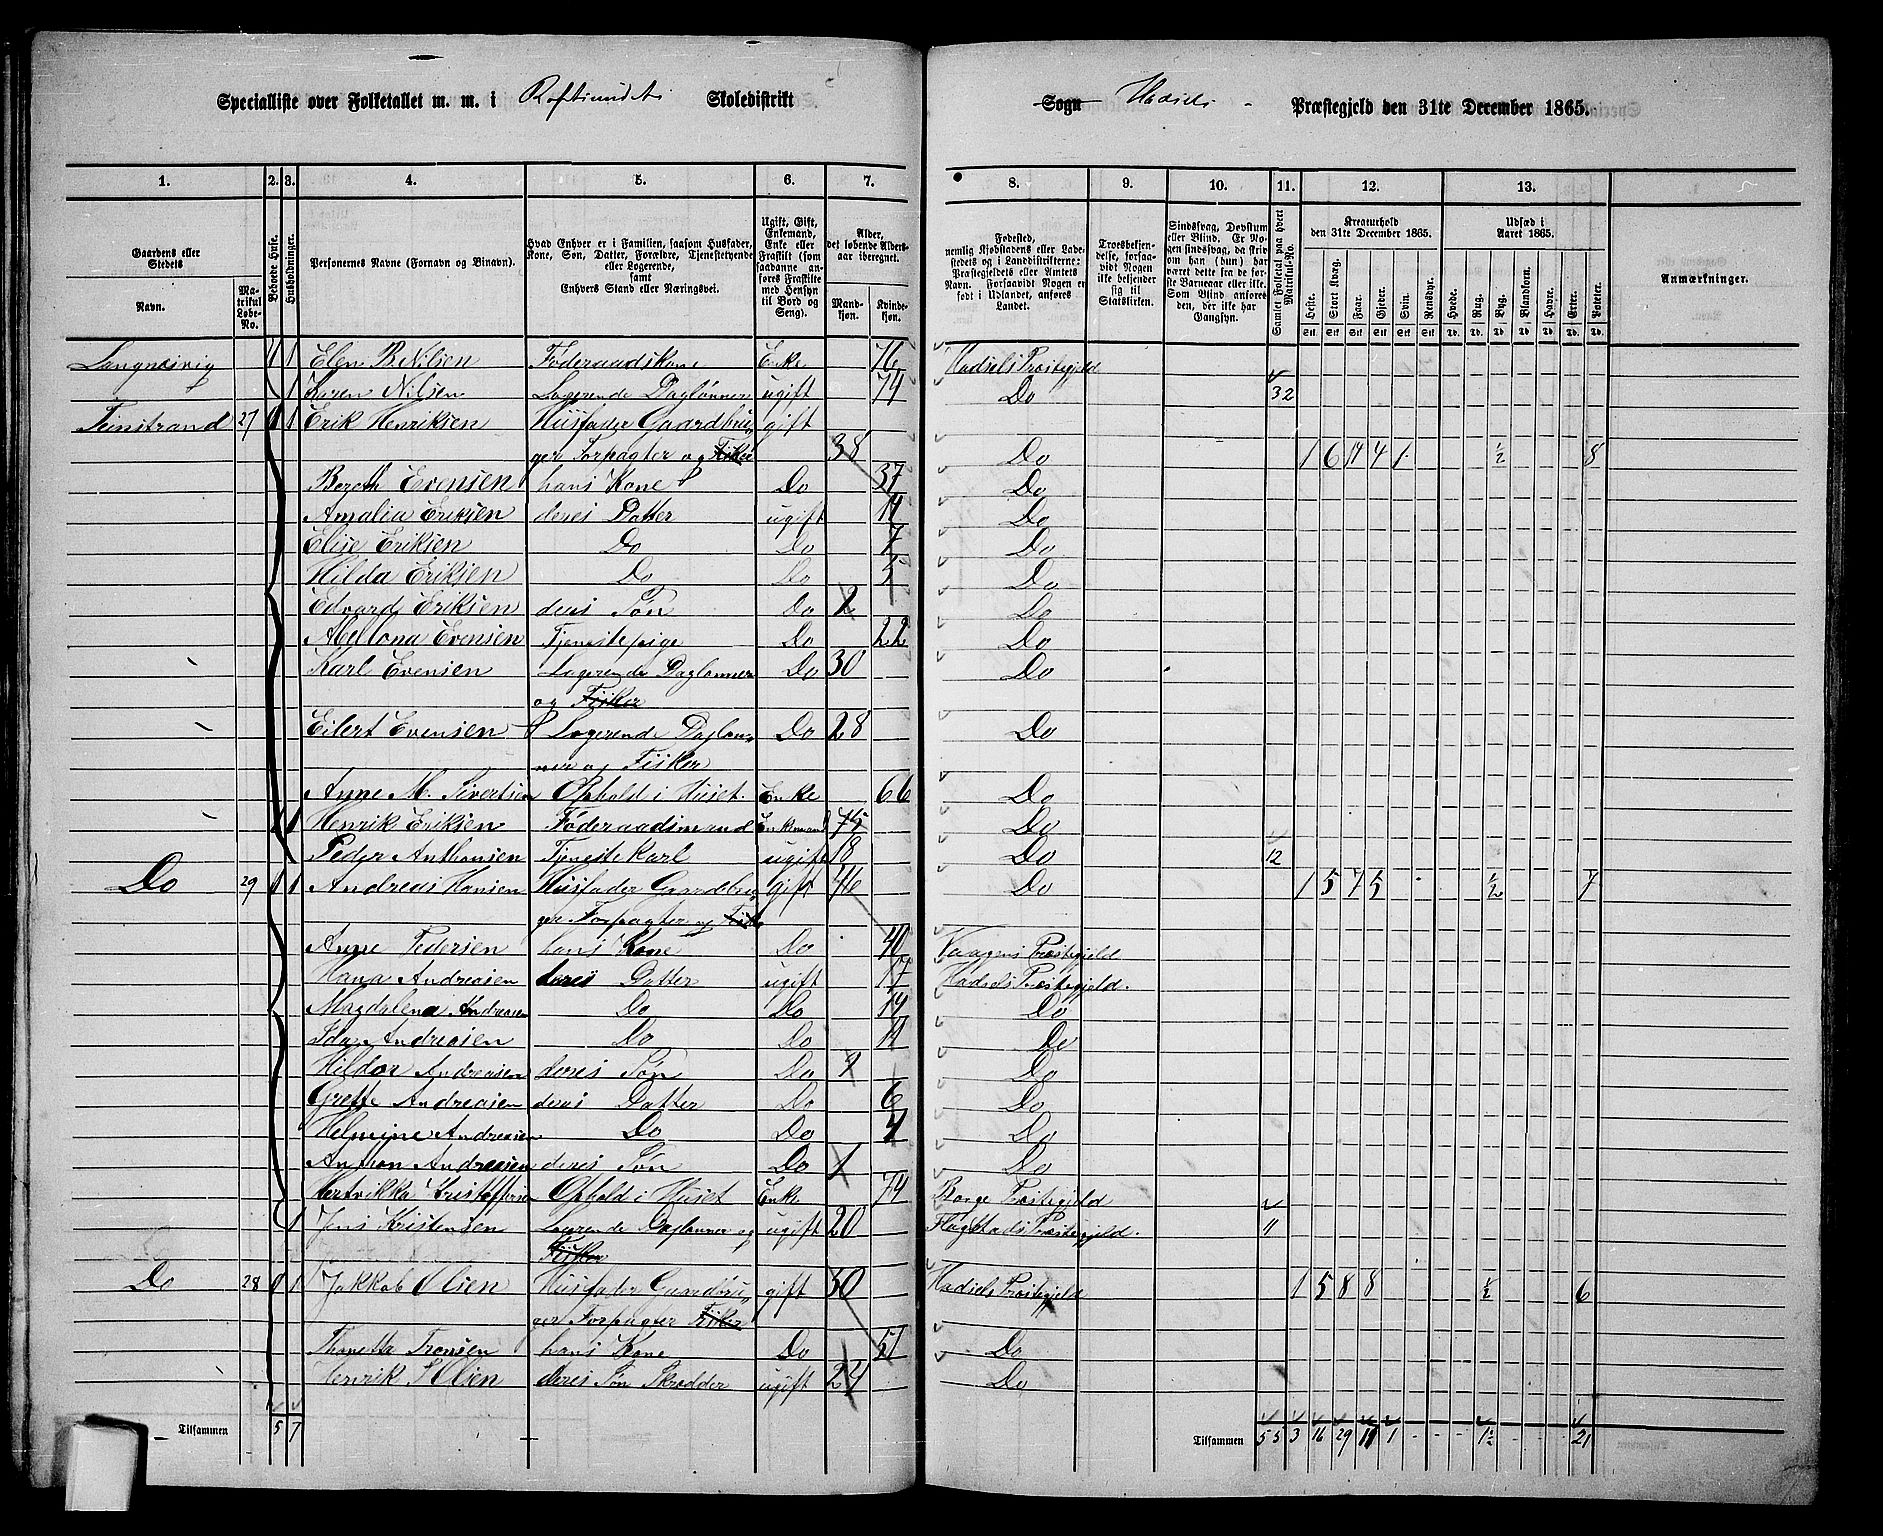 Specialliste over Folketallet m. m. i Raftsundets Skoledistrikt
Sogn Hadsels Præstegjeld den 31te December 1865.
1. 2. 3. 4. 5. 6. 7. 8. 9. 10. 11. 12. 13.
Gaardens eller Stedets Navn. Matrikul Løbe-No.
Beboede Huse.
Husholdninger.
Personernes Navne (Fornavn og Binavn).
Hvad Enhver er i Familien, saasom Husfader, Kone, Søn, Datter, Forældre, Tjenestetyende eller Logerende, samt Enhvers Stand eller Næringsvei.
Ugift, Gift, Enkemand, Enke eller Fraskilt (som saadanne anføres Fraskilte med Hensyn til Bord og Seng).
Alder, det løbende Aldersaar iberegnet. Mandkjøn. Kvindekjøn.
Fødested, nemlig Kjøbstadens eller Ladestedets eller i Landdistrikterne: Præstegjeldets eller Amtets Navn. Forsaavidt Nogen er født i Udlandet, anføres Landet.
Troesbekjendelse, forsaavidt Nogen ikke bekjender sig til Statskirken.
Sindssvag, Døvstum eller Blind. Er Nogen sindssvag, da skrives, om han (hun) har været dette fra de første Barneaar eller ikke. Som Blind anføres den, der ikke har Gangsyn.
Samlet Folketal paa hvert Matrikul-No.
Kreaturhold den 31te December 1865.
Heste. Stort Kvæg. Faar. Gjeder. Svin. Rensdyr.
Udsæd i Aaret 1865.
Hvede. Rug. Byg. Blandkorn. Havre. Erter. Poteter.
Anmærkninger.
Langnæsvig 1 1 Elen B. Nilsen Føderaadskone Enke 76 Hadsels Præstegjeld
1 Karen Nilsen Logerende Daglønner ugift 74 Do 32
Tenstrand 27 1 1 Erik Henriksen Husfader Gaardbru- gift
ger Forpagter og Fisker 38 Do 1 6 17 4 1 ½ 8
Bereth Evensen hans Kone Do 37 Do
Amalia Eriksen deres Datter ugift 11 Do
Elise Eriksen Do Do 7 Do
Hilda Eriksen Do Do 5 Do
Edvard Eriksen deres Søn Do 2 Do
Abellona Evensen Tjenestepige Do 22 Do
Karl Evensen Logerende Daglønner Do 30 Do
og Fisker
Eilert Evensen Logerende Dagløn- Do 28 Do
ner og Fisker
Anne M. Sivertsen Ophold i Huset. Enke 66 Do
1 1 Henrik Eriksen Føderaadsmand Enkemand 75 Do
Peder Anthonsen Tjenestekarl ugift 18 Do 12
Do 29 1 1 Andreas Hansen Husfader Gaardebru- Gift 46 Do 1 5 7 5 ½ 7
ger Forpagter og Fisker
Anne Pedersen hans Kone Do 40 Vaagens Præstegjeld
Hana Andreasen deres Datter ugift 17 Hadsels Præstegjeld.
Magdalena Andreasen Do Do 14 Do
Ida Andreasen Do Do 11 Do
Hildor Andreasen deres Søn Do 9 Do
Grette Andreasen deres Datter Do 6 Do
Helmine Andreasen Do Do 4 Do
Anthon Andreasen deres Søn Do 1 Do
Hertvikka Kristoffersen Ophold i Huset Enke 74 Borge Præstegjeld
1 Jens Kristensen Logerende Daglønner og ugift 20 Flagstads Præstegjeld. 11
Fisker
Do 28 1 1 Jakkob Olsen Husfader Gaardbru- gift 50 Hadsels Præstegjeld 1 5 8 8 ½ 6
ger Forpagter Fisker
Thonetta Trensen hans Kone Do 51 Do
Henrik J Olsen deres Søn Skrædder ugift 24 Do
Tilsammen 5 7
Tilsammen 55 3 16 29 17 1 1½ 21